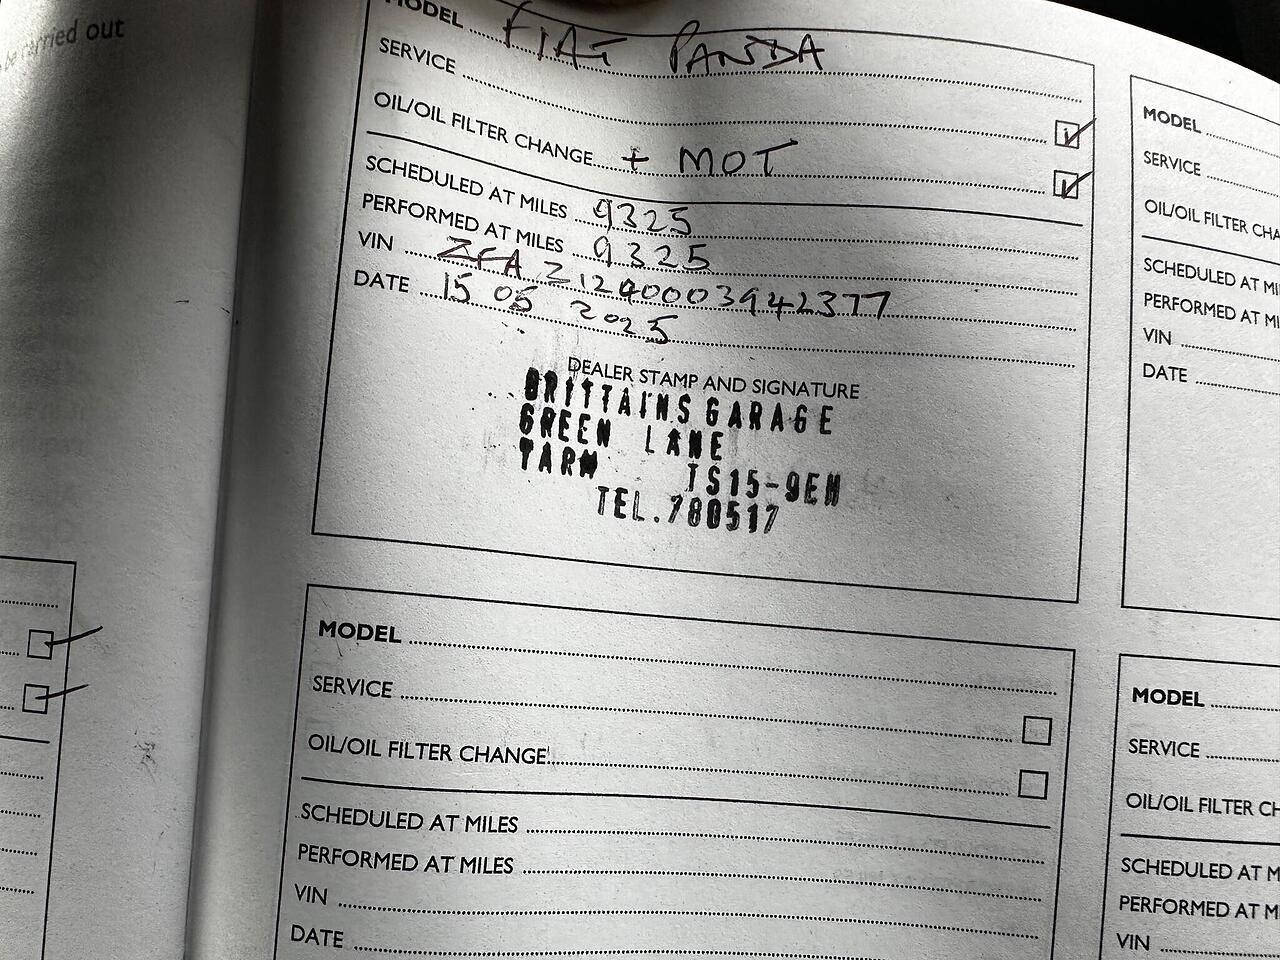 be carried out
MODEL FIAT PANDA
SERVICE
OIL/OIL FILTER CHANGE + MOT
SCHEDULED AT MILES 9325
PERFORMED AT MILES 9325
VIN ZFA 31200003942377
DATE 15 05 2025
DEALER STAMP AND SIGNATURE
BRITTAINS GARAGE
GREEN LANE
YARM TS15-9EH
TEL.780517
MODEL
SERVICE
OIL/OIL FILTER CHANGE
SCHEDULED AT MILES
PERFORMED AT MILES
VIN
DATE
MODEL
SERVICE
OIL/OIL FILTER CHA
SCHEDULED AT MI
PERFORMED AT MI
VIN
DATE
MODEL
SERVICE
OIL/OIL FILTER CH
SCHEDULED AT M
PERFORMED AT M
VIN